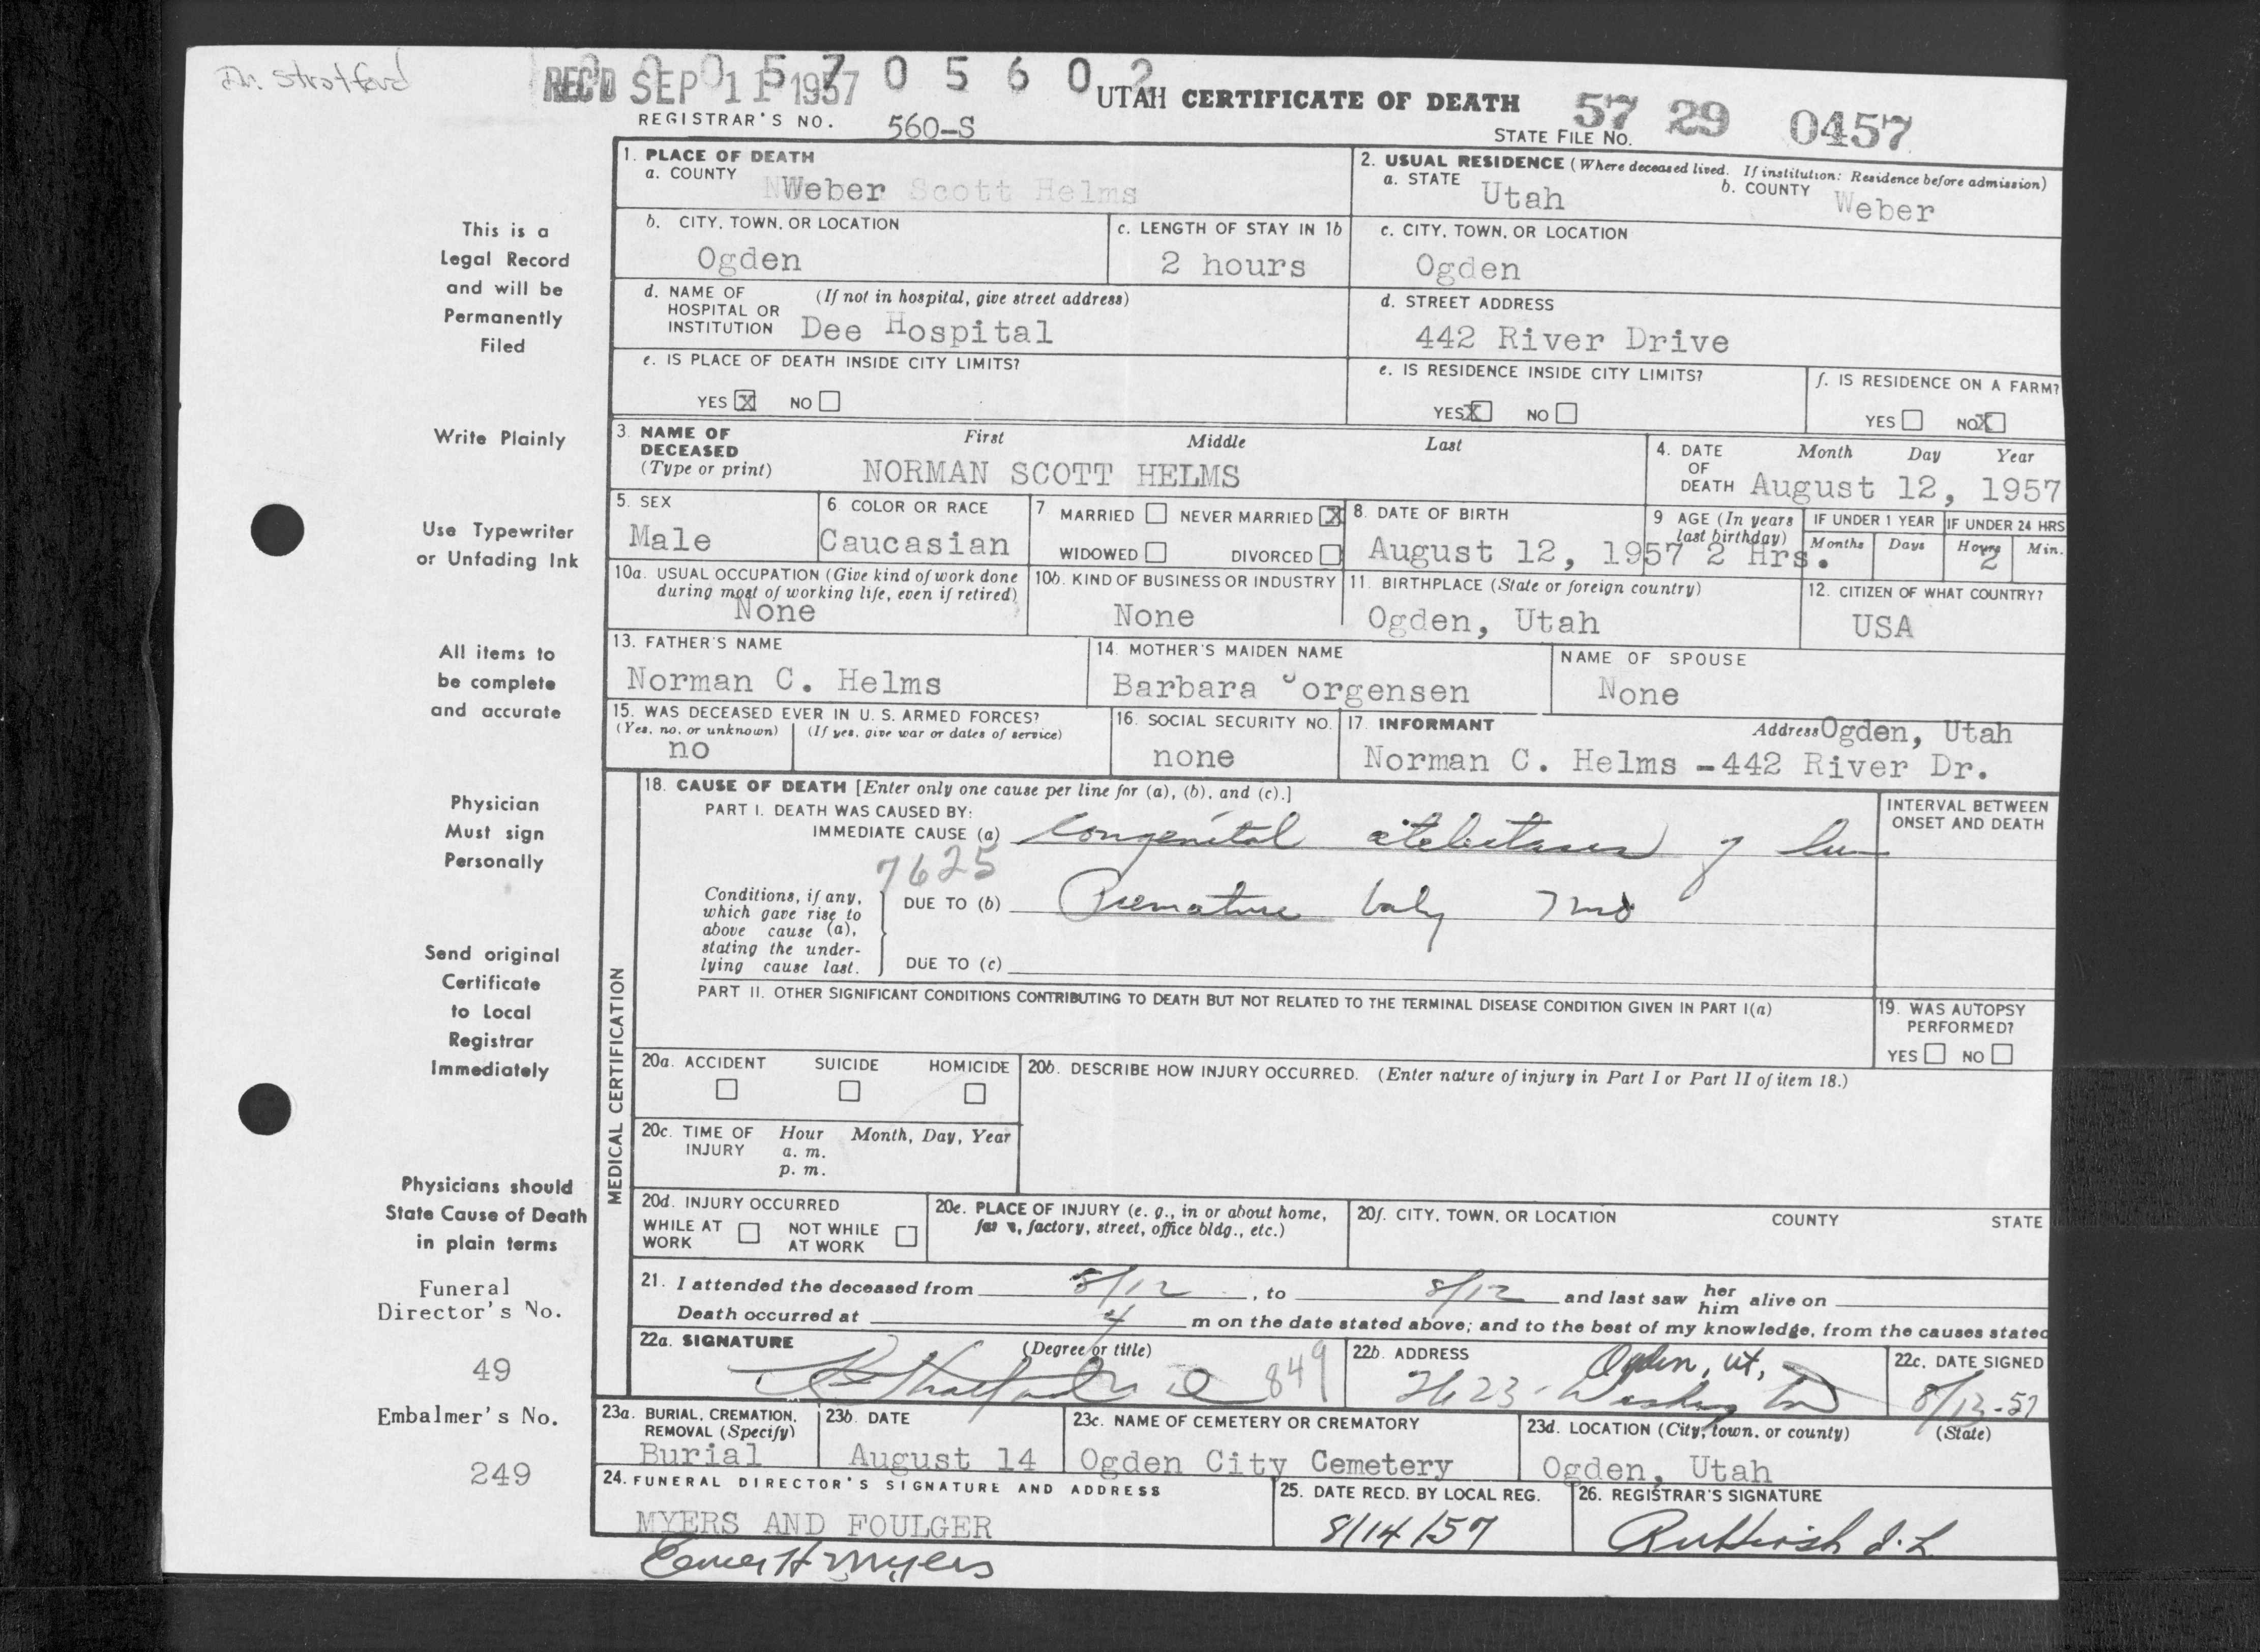 Dr. Stratford
REC'D SEP 11 1957 0 5 6 0 2
UTAH CERTIFICATE OF DEATH
57 29 0457
REGISTRAR'S NO. 560-S
STATE FILE NO.
1. PLACE OF DEATH
a. COUNTY Weber Scott Helms
2. USUAL RESIDENCE (Where deceased lived. If institution: Residence before admission)
a. STATE Utah b. COUNTY Weber
b. CITY, TOWN, OR LOCATION
Ogden
c. LENGTH OF STAY IN 1b
2 hours
c. CITY, TOWN, OR LOCATION
Ogden
d. NAME OF HOSPITAL OR INSTITUTION (If not in hospital, give street address)
Dee Hospital
d. STREET ADDRESS
442 River Drive
e. IS PLACE OF DEATH INSIDE CITY LIMITS?
YES X NO
e. IS RESIDENCE INSIDE CITY LIMITS?
YES X NO
f. IS RESIDENCE ON A FARM?
YES NO X
3. NAME OF DECEASED (Type or print)
First Middle Last
NORMAN SCOTT HELMS
4. DATE OF DEATH
Month Day Year
August 12, 1957
5. SEX
Male
6. COLOR OR RACE
Caucasian
7 MARRIED NEVER MARRIED X
WIDOWED DIVORCED
8. DATE OF BIRTH
August 12, 1957
9 AGE (In years last birthday)
2 Hrs.
IF UNDER 1 YEAR
Months Days
IF UNDER 24 HRS
Hours Min.
2
10a. USUAL OCCUPATION (Give kind of work done during most of working life, even if retired)
None
10b. KIND OF BUSINESS OR INDUSTRY
None
11. BIRTHPLACE (State or foreign country)
Ogden, Utah
12. CITIZEN OF WHAT COUNTRY?
USA
13. FATHER'S NAME
Norman C. Helms
14. MOTHER'S MAIDEN NAME
Barbara Jorgensen
NAME OF SPOUSE
None
15. WAS DECEASED EVER IN U. S. ARMED FORCES?
(Yes, no, or unknown) (If yes, give war or dates of service)
no
16. SOCIAL SECURITY NO.
none
17. INFORMANT Address Ogden, Utah
Norman C. Helms -442 River Dr.
MEDICAL CERTIFICATION
18. CAUSE OF DEATH [Enter only one cause per line for (a), (b), and (c).]
PART I. DEATH WAS CAUSED BY:
IMMEDIATE CAUSE (a) Congenital atelectasis of
INTERVAL BETWEEN ONSET AND DEATH
7625
Conditions, if any, which gave rise to above cause (a), stating the underlying cause last.
DUE TO (b) Premature baby 7 mo
DUE TO (c)
PART II. OTHER SIGNIFICANT CONDITIONS CONTRIBUTING TO DEATH BUT NOT RELATED TO THE TERMINAL DISEASE CONDITION GIVEN IN PART I(a)
19. WAS AUTOPSY PERFORMED?
YES NO
20a. ACCIDENT SUICIDE HOMICIDE
20b. DESCRIBE HOW INJURY OCCURRED. (Enter nature of injury in Part I or Part II of item 18.)
20c. TIME OF INJURY Hour Month, Day, Year
a. m.
p. m.
20d. INJURY OCCURRED
WHILE AT WORK NOT WHILE AT WORK
20e. PLACE OF INJURY (e. g., in or about home, farm, factory, street, office bldg., etc.)
20f. CITY, TOWN, OR LOCATION COUNTY STATE
21. I attended the deceased from 8/12, to 8/12 and last saw her him alive on
Death occurred at 4 m on the date stated above; and to the best of my knowledge, from the causes stated
22a. SIGNATURE (Degree or title)
849
22b. ADDRESS Ogden, Ut,
2623 - Washington
22c. DATE SIGNED
8/13-57
23a. BURIAL, CREMATION, REMOVAL (Specify)
Burial
23b. DATE
August 14
23c. NAME OF CEMETERY OR CREMATORY
Ogden City Cemetery
23d. LOCATION (City, town, or county) (State)
Ogden, Utah
24. FUNERAL DIRECTOR'S SIGNATURE AND ADDRESS
MYERS AND FOULGER
25. DATE RECD. BY LOCAL REG.
8/14/57
26. REGISTRAR'S SIGNATURE
This is a
Legal Record
and will be
Permanently
Filed
Write Plainly
Use Typewriter
or Unfading Ink
All items to
be complete
and accurate
Physician
Must sign
Personally
Send original
Certificate
to Local
Registrar
Immediately
Physicians should
State Cause of Death
in plain terms
Funeral
Director's No.
49
Embalmer's No.
249